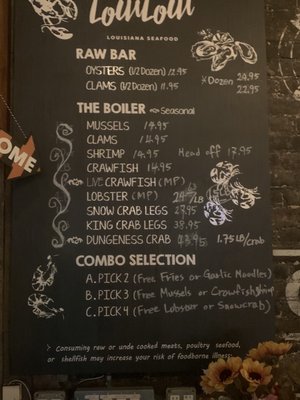 LouLou
LOUISIANA SEAFOOD
RAW BAR
OYSTERS (1/2 Dozen) 12.95
CLAMS (1/2 Dozen) 11.95
x Dozen 24.95
22.95
THE BOILER Seasonal
MUSSELS 14.95
CLAMS 14.95
SHRIMP 14.95 Head off 17.95
CRAWFISH 14.95
LIVE CRAWFISH (MP)
LOBSTER (MP) /LB
SNOW CRAB LEGS 27.95
KING CRAB LEGS 38.95
DUNGENESS CRAB 1.75 LB/crab
COMBO SELECTION
A. PICK 2 (Free Fries or Garlic Noodles)
B. PICK 3 (Free Mussels or Crawfish/Shrimp
C. PICK 4 (Free Lobster or Snowcrab)
Consuming raw or unde cooked meats, poultry seafood,
or shellfish may increase your risk of foodborne illness.
OME